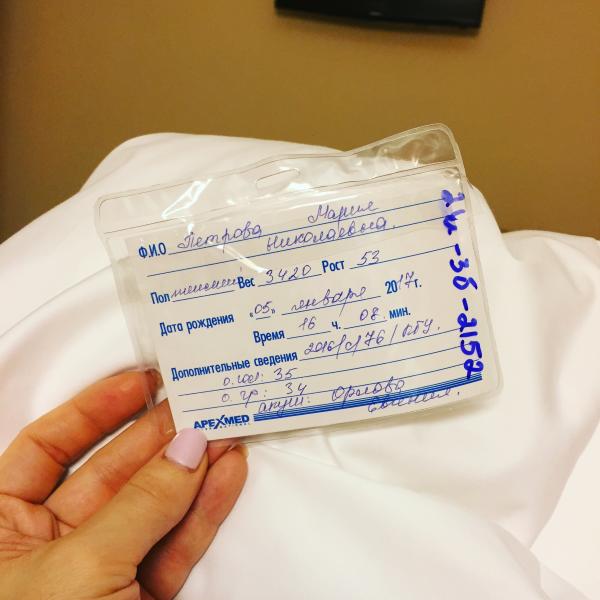 Мария
Ф.И.О Петрова Николаевна.
Пол женский Вес 3420 Рост 53
Дата рождения "05" января 2017 г.
Время 16 ч. 08 мин.
Дополнительные сведения 2016/с/76/ПГУ.
о. гол: 35
о. гр: 34
акуш: Орлова
Евгения.
APEXMED
-36-2152